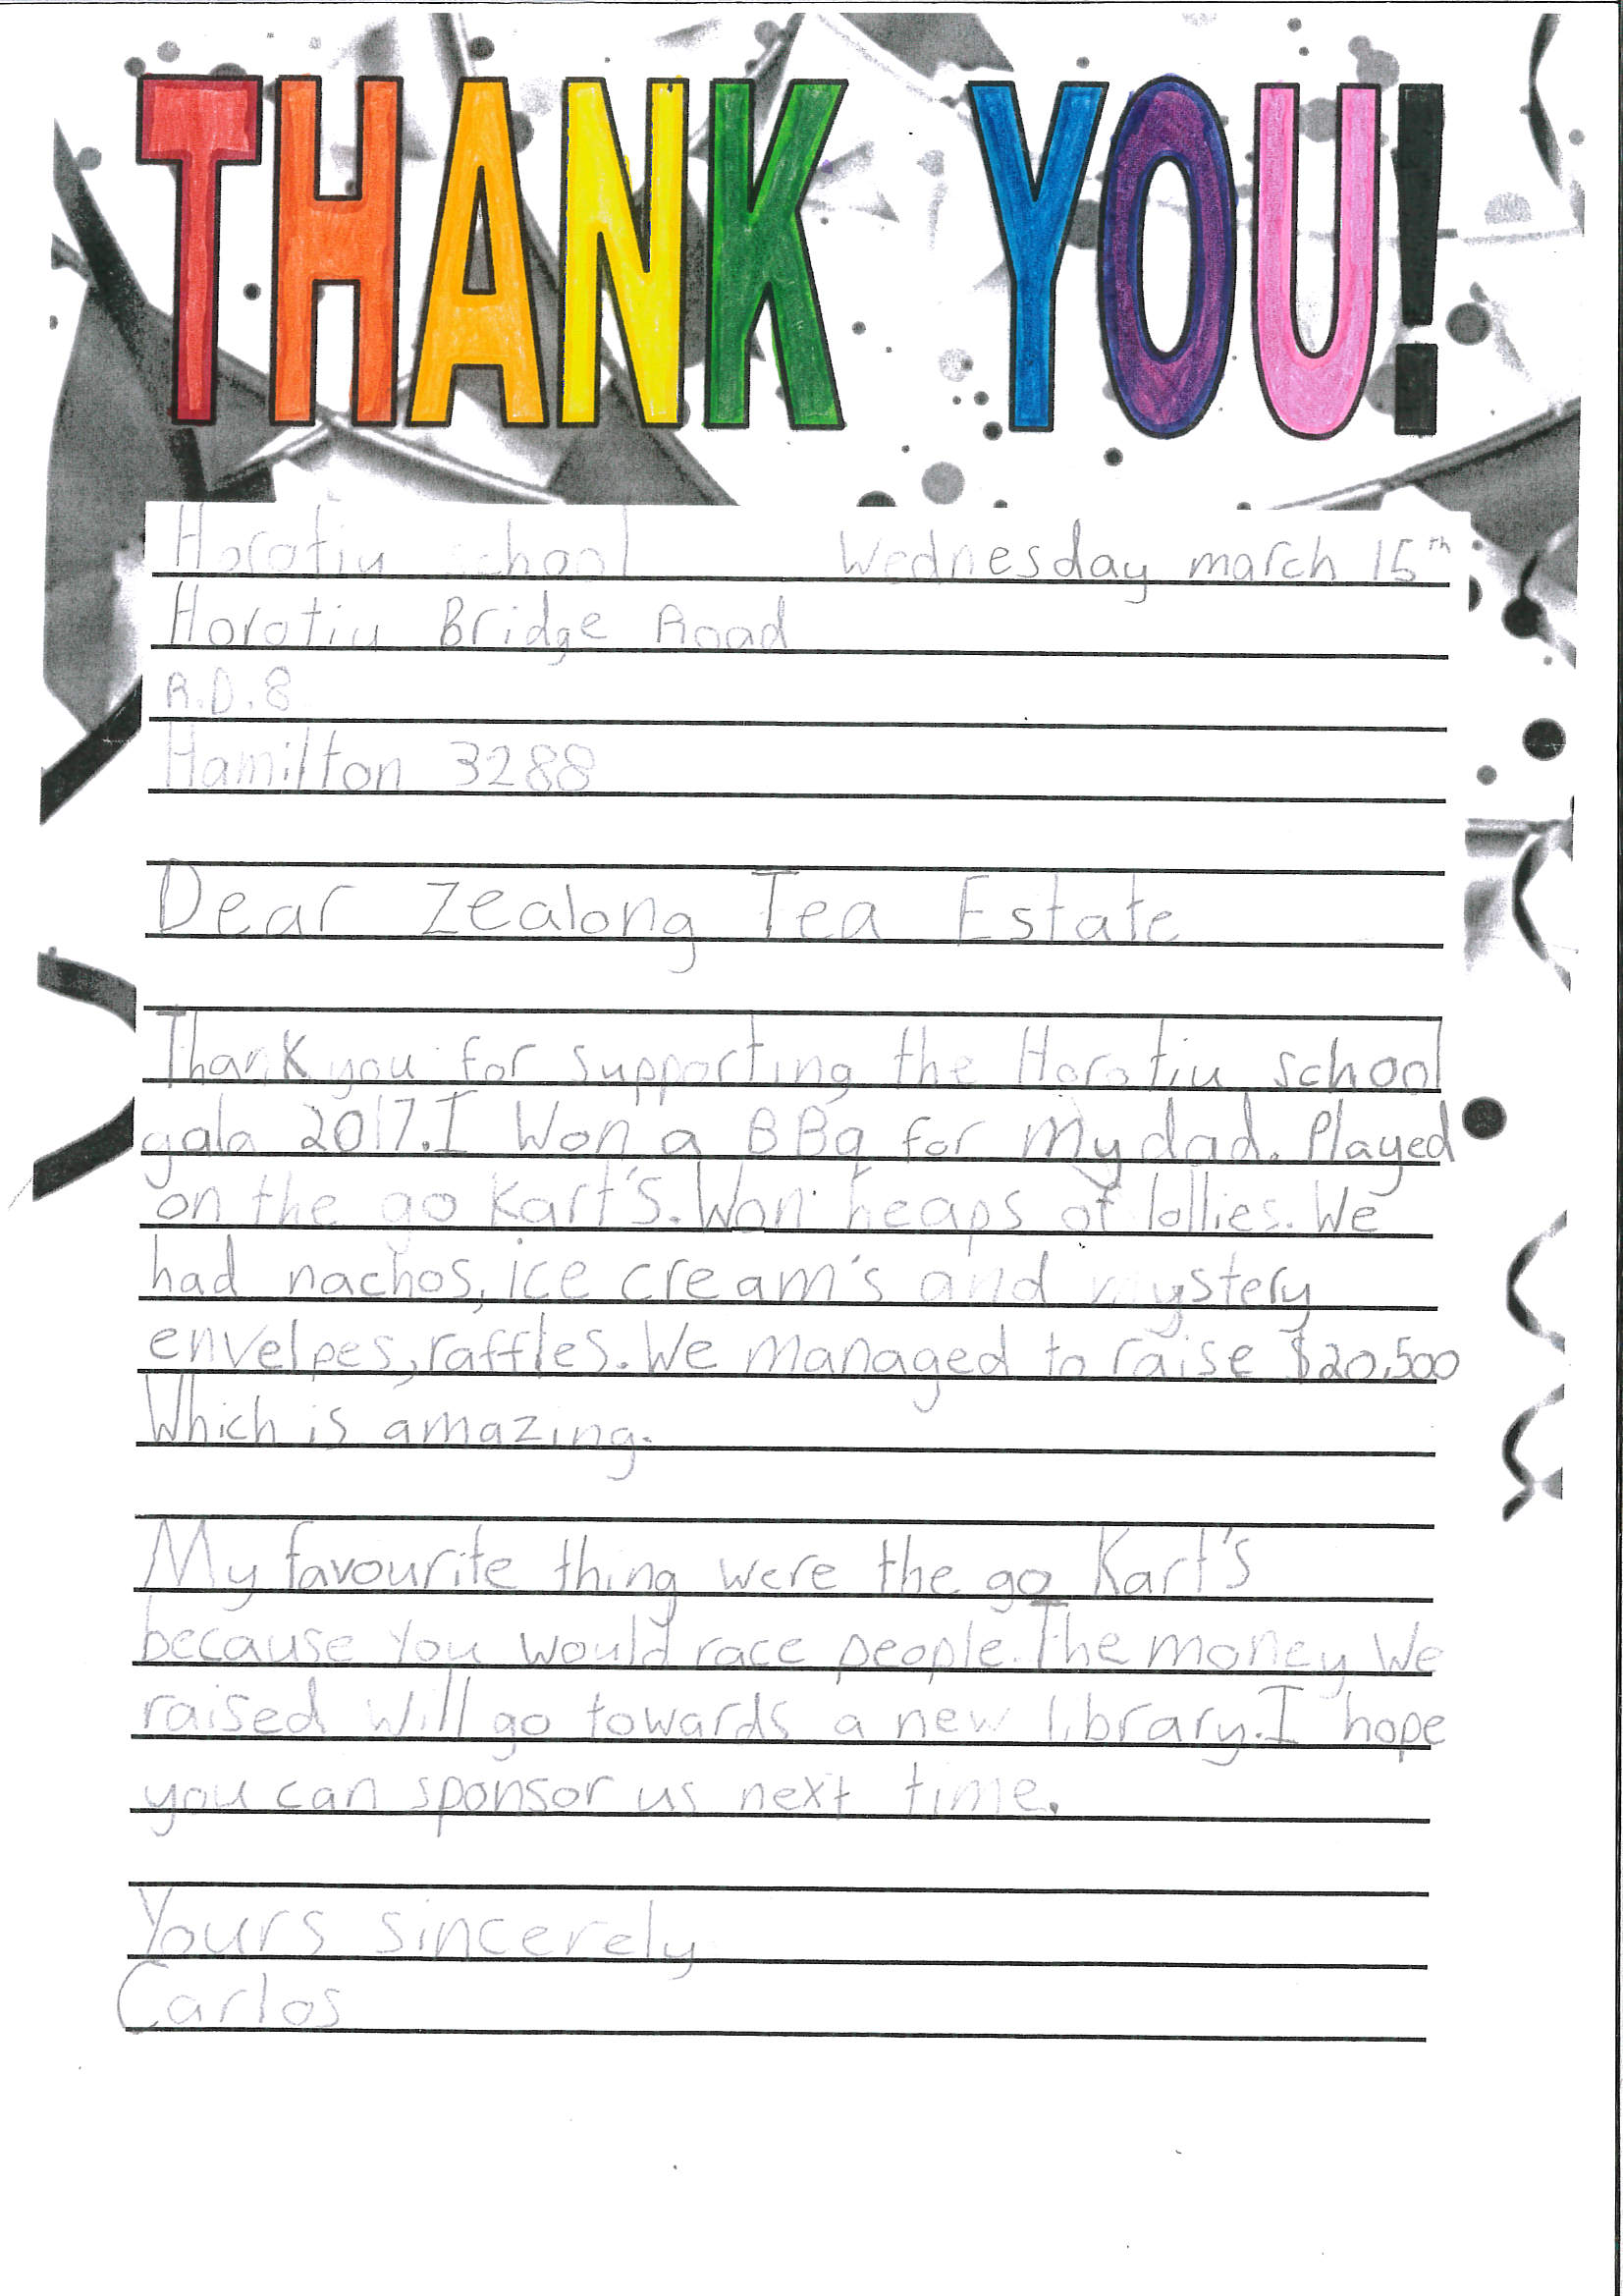 THANK YOU!
Horotiu school Wednesday march 15th
Horotiu Bridge Road
R.D.8
Hamilton 3288
Dear Zealong Tea Estate
Thank you for supporting the Horotiu school
gala 2017. I Won a BBq for My dad. Played
on the go Kart's. Won heaps of lollies. We
had nachos, ice cream's and mystery
envelpes, raffles. We managed to raise $20,500
Which is amazing.
My favourite thing were the go Kart's
because you would race people. The money We
raised will go towards a new library. I hope
you can sponsor us next time.
Yours sincerely
Carlos